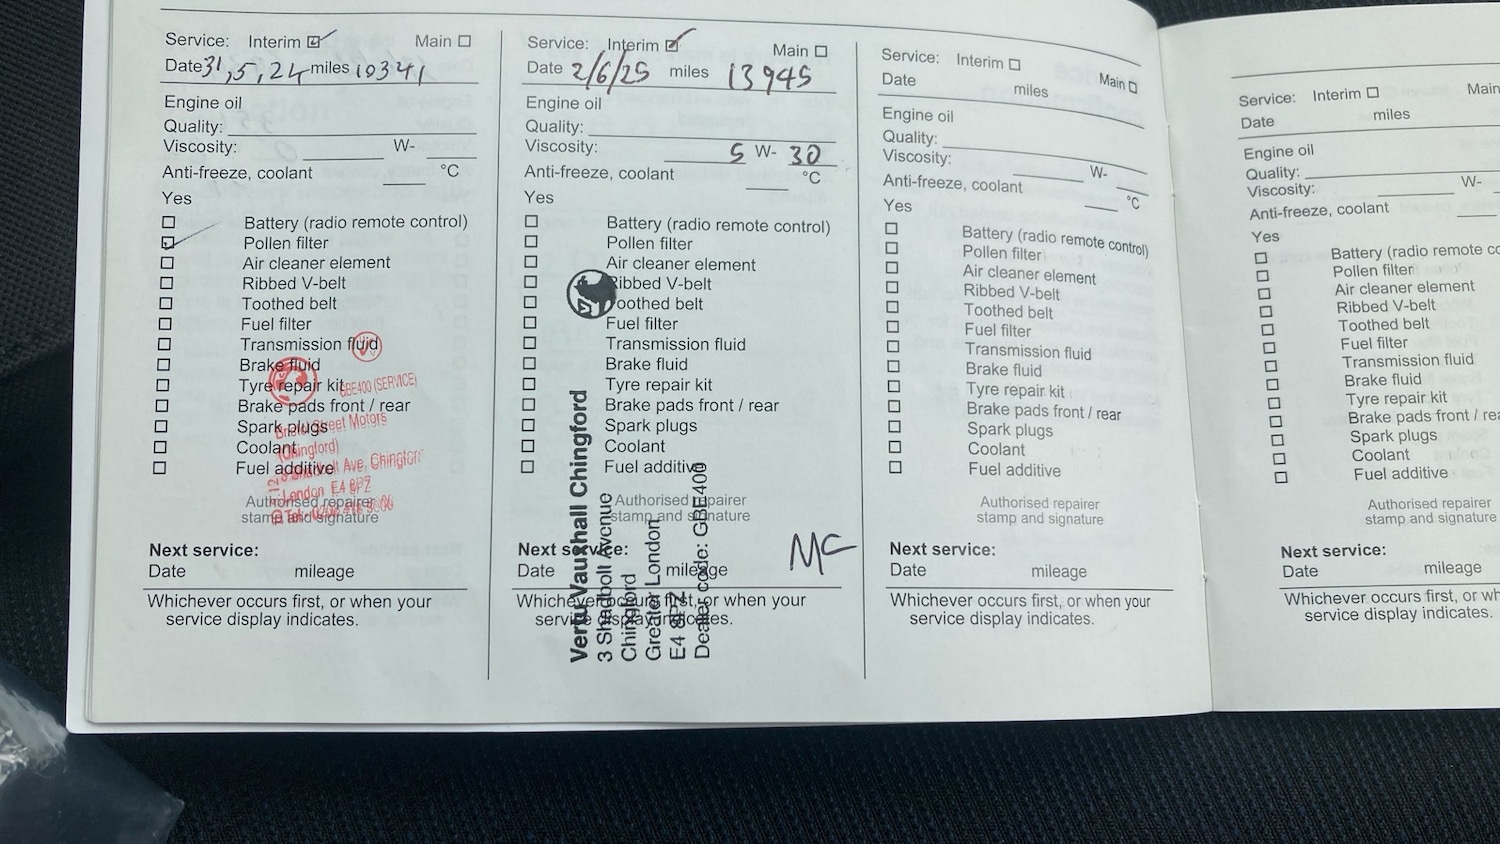 Service: Interim Main
Date 31,5,24 miles 10341
Engine oil
Quality:
Viscosity: W-
Anti-freeze, coolant °C
Yes
Battery (radio remote control)
Pollen filter
Air cleaner element
Ribbed V-belt
Toothed belt
Fuel filter
Transmission fluid
Brake fluid
Tyre repair kit
Brake pads front / rear
Spark plugs
Coolant
Fuel additive
GBE400 (SERVICE)
Street Motors
(Chingford)
Ave, Chingford
London E4 8PZ
Authorised repairer
stamp and signature
Next service:
Date mileage
Whichever occurs first, or when your
service display indicates.
Service: Interim Main
Date 2/6/25 miles 13945
Engine oil
Quality:
Viscosity: 5 W- 30
Anti-freeze, coolant °C
Yes
Battery (radio remote control)
Pollen filter
Air cleaner element
Ribbed V-belt
Toothed belt
Fuel filter
Transmission fluid
Brake fluid
Tyre repair kit
Brake pads front / rear
Spark plugs
Coolant
Fuel additive
Vertu Vauxhall Chingford
3 Shadbolt Avenue
Chingford
Greater London
E4 8PZ
Dealer code: GBE400
Authorised repairer
stamp and signature
MC
Next service:
Date mileage
Whichever occurs first, or when your
service display indicates.
Service: Interim Main
Date miles
Engine oil
Quality:
Viscosity: W-
Anti-freeze, coolant °C
Yes
Battery (radio remote control)
Pollen filter
Air cleaner element
Ribbed V-belt
Toothed belt
Fuel filter
Transmission fluid
Brake fluid
Tyre repair kit
Brake pads front / rear
Spark plugs
Coolant
Fuel additive
Authorised repairer
stamp and signature
Next service:
Date mileage
Whichever occurs first, or when your
service display indicates.
Service: Interim Main
Date miles
Engine oil
Quality:
Viscosity: W-
Anti-freeze, coolant
Yes
Battery (radio remote co
Pollen filter
Air cleaner element
Ribbed V-belt
Toothed belt
Fuel filter
Transmission fluid
Brake fluid
Tyre repair kit
Brake pads front / rea
Spark plugs
Coolant
Fuel additive
Authorised repairer
stamp and signature
Next service:
Date mileage
Whichever occurs first, or wh
service display indicates.